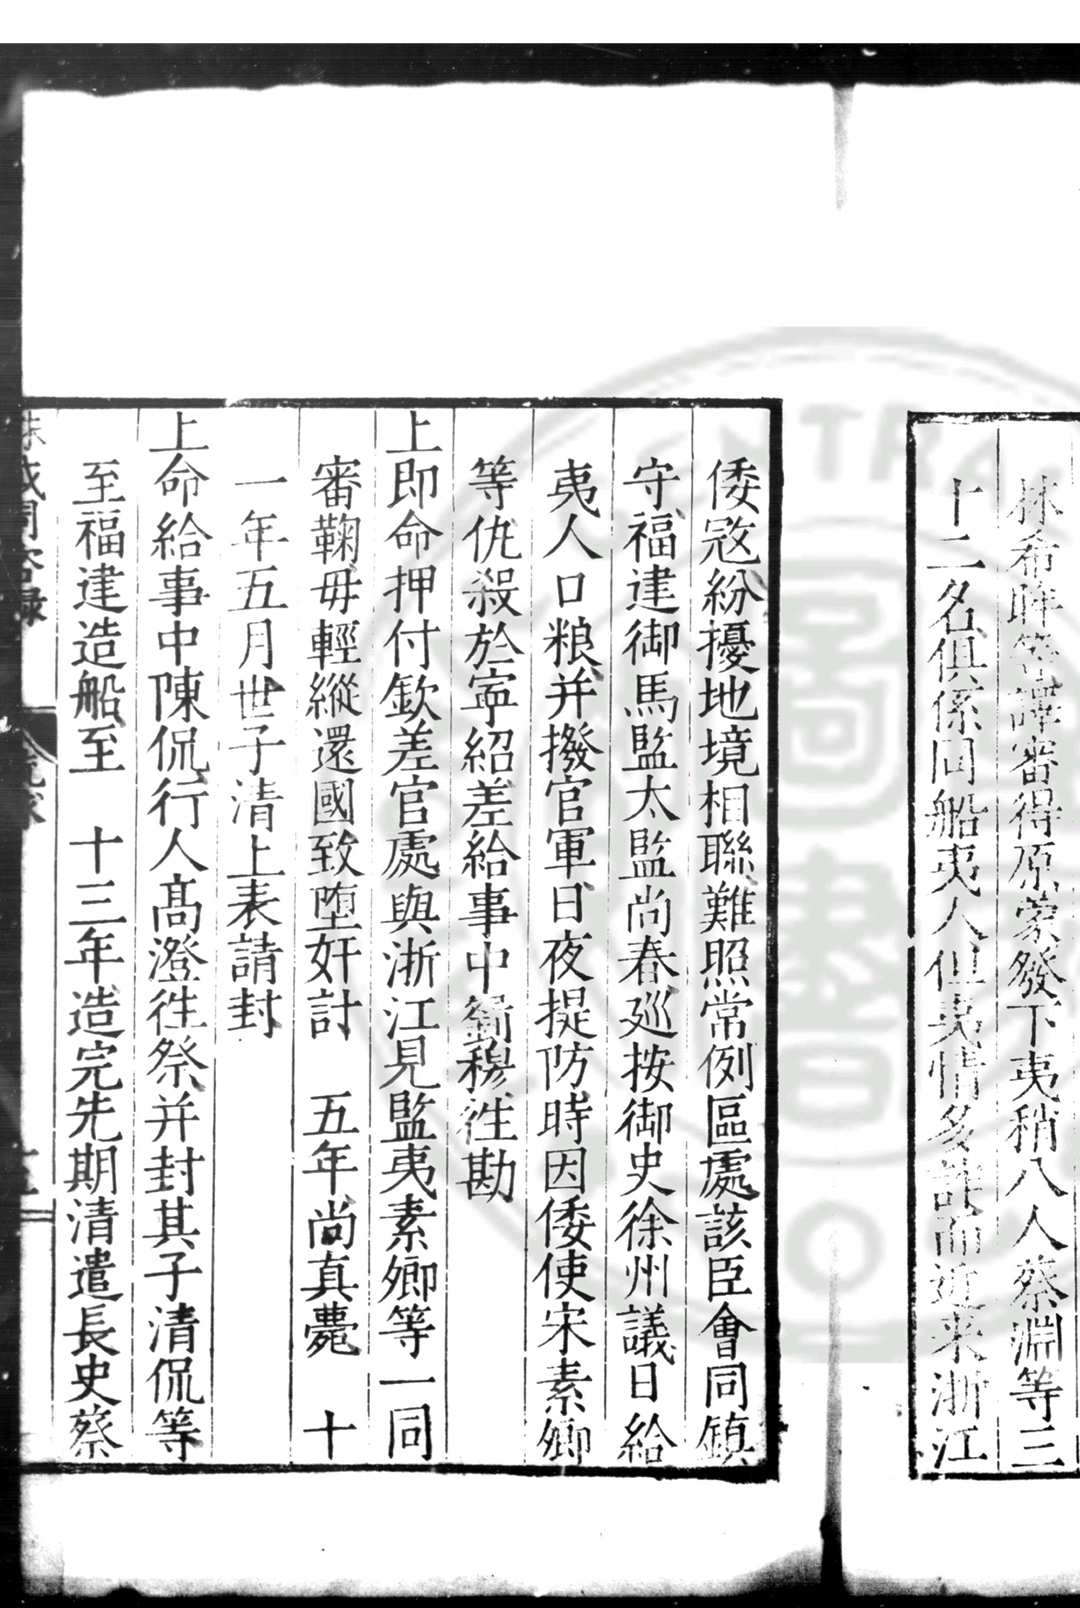 林希畔等譯審得原蒙發下夷稍八人蔡淵等三
十二名俱係同船夷人但夷情多詐而近來浙江
倭寇紛擾地境相聯難照常例區處該臣會同鎮
守福建御馬監太監尚春巡按御史徐州議日給
夷人口粮并撥官軍日夜提防時因倭使宋素卿
等仇殺於寧紹差給事中劉穆徃勘
上即命押付欽差官處與浙江見監夷素卿等一同
審鞠毋輕縱還國致堕奸計 五年尚真薨 十
一年五月世子清上表請封
上命給事中陳侃行人高澄徃祭并封其子清侃等
至福建造船至 十三年造完先期清遣長史蔡
殊域周咨錄